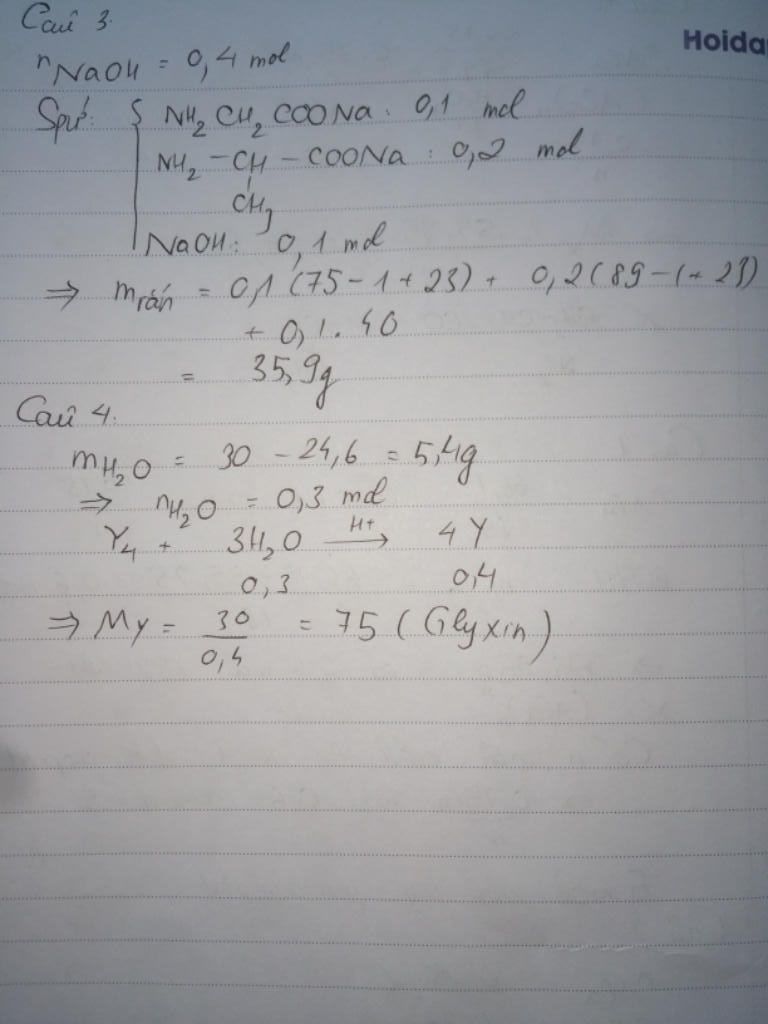 Câu 3.
Hoida
nNaOH = 0,4 mol
Spứ: { NH2CH2COONa : 0,1 mol
NH2 - CH - COONa : 0,2 mol
CH3
NaOH : 0,1 mol
⇒ mrắn = 0,1(75-1+23) + 0,2(89-1+23)
+ 0,1.40
= 35,9g
Câu 4.
mH2O = 30 - 24,6 = 5,4g
⇒ nH2O = 0,3 mol
Y4 + 3H2O —H+→ 4Y
0,3 0,4
⇒ MY = 30/0,4 = 75 (Glyxin)